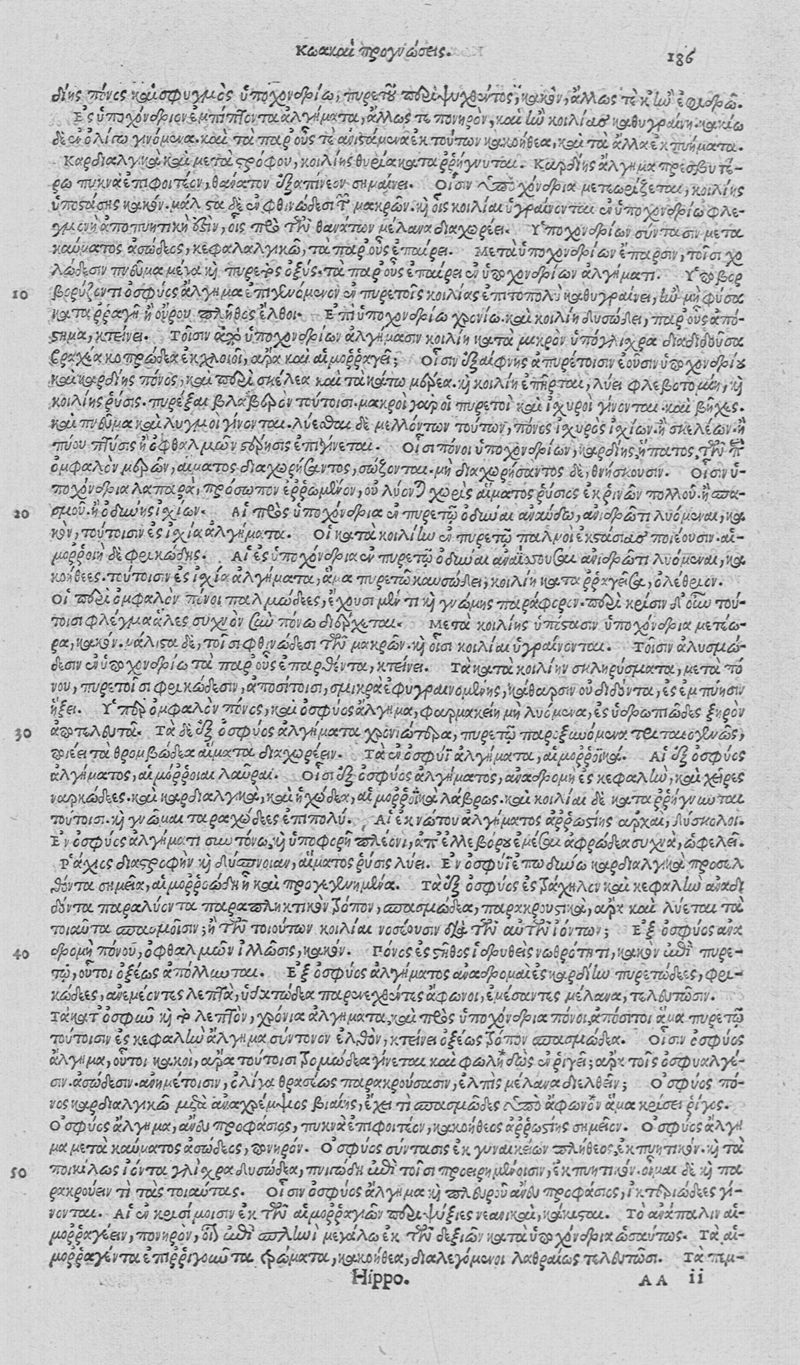 Κωακαὶ προγνώσεις.
186
δίης πόνος καὶ σφυγμὸς ὑποχονδρίῳ, πυρετοῦ περιψυχθέντος, κακὸν, ἄλλως τε κἢν ἐφιδρῶ.
Ἐς ὑποχόνδριον ἐμπίπτοντα ἀλγήματα, ἄλλως τε πονηρὸν, καὶ ἢν κοιλίας καθυγραίνῃ. κακίω
δὲ ἐν ὀλίγῳ γινόμενα. καὶ τὰ παρ' οὖς τε ἀνιστάμενα ἐκ τούτων κακοήθεα, καὶ τὰ ἄλλα ἐκπυήματα.
Καρδιαλγικὰ καὶ μετὰ στρόφου, κοιλίης θυρία καταρρήγνυται. Καρδίης ἄλγημα πρεσβυτέ-
ρῳ πυκνὰ ἐπιφοιτέον, θάνατον ἐξαπίνεον σημαίνει. Οἷσιν ὑποχόνδρια μετεωρίζεται, κοιλίης
ὑποστάσης κακὸν. μάλιστα δὲ ἐν φθινώδεσι τῶν μακρῶν. καὶ οἷς κοιλίαι ὑγραίνονται ἐν ὑποχονδρίῳ φλε-
γμονὴ ἀποπυητικὴ ἐστιν, οἷς πρὸ τῶν θανάτων μέλανα διαχωρέει. Ὑποχονδρίων σύντασιν μετὰ
καύματος ἀσώδεος, κεφαλαλγικῷ, τὰ παρ' οὖς ἐπαίρει. Μετὰ ὑποχονδρίων ἔπαρσιν, τοῖσι χο
λώδεσιν πνεῦμα μέγα καὶ πυρετὸς ὀξὺς. τὰ παρ' οὖς ἐπαίρει ἐν ὑποχονδρίων ἀλγήματι. Ὑποβορ
10 βορύζοντι ὀσφύος ἄλγημα ἐπιγενόμενον ἐν πυρετοῖς κοιλίας ἐπιτοπολὺ καθυγραίνει, ἢν μὴ φύσα
καταρραγῇ ἢ οὔρου πλῆθος ἔλθοι. Ἐπὶ ὑποχονδρίῳ χρονίῳ. καὶ κοιλίῃ δυσώδει, παρ' οὖς ἀπό-
στημα, κτείνει. Τοῖσιν ἀπὸ ὑποχονδρίων ἀλγήμασιν κοιλίη κατὰ μικρὸν ὑπόγλισχρα διαδιδοῦσα
βραχέα κοπρώδεα ἐκχλοιοῖ, ἆρα καὶ αἱμορραγεῖ; Οἷσιν ἐξαίφνης ἀπυρέτοισιν ἐοῦσιν ὑποχονδρίου
καὶ καρδίης πόνος, καὶ περὶ σκέλεα καὶ τὰ κάτω μόρεα. καὶ κοιλίη ἐπῆρται, λύει φλεβοτομίη, καὶ
κοιλίης ῥύσις. πυρέξαι βλαβερὸν τούτοισι. μακροὶ γὰρ οἱ πυρετοὶ καὶ ἰσχυροὶ γίνονται. καὶ βῆχες.
καὶ πνεῦμα καὶ λυγμοὶ γίνονται. λύεσθαι δὲ μελλόντων τούτων, πόνος ἰσχυρὸς ἰσχίων. ἢ σκελέων. ἢ
πύου πτύσις ἢ ὀφθαλμῶν στέρησις ἐπιγίνεται. Οἷσι πόνοι ὑποχονδρίων, καρδίης, ἥπατος, τῶν περὶ
ὀμφαλὸν μερέων, αἵματος διαχωρήσαντος, σώζονται. μὴ διαχωρήσαντος δὲ, θνήσκουσιν. Οἷσιν ὑ-
ποχόνδρια λαπαρὰ, πρόσωπον ἐρρωμένον, οὐ λύονται χωρὶς αἵματος ῥύσιος ἐκ ῥινῶν πολλοῦ. ἢ σπα-
20 σμοῦ. ἢ ὀδύνης ἰσχίων. Αἱ πρὸς ὑποχόνδρια ἐν πυρετῷ ὀδύναι ἀναύδῳ, ἀνιδρωτὶ λυόμεναι, κα
κὸν, τούτοισιν ἐς ἰσχία ἀλγήματα. Οἱ κατὰ κοιλίην ἐν πυρετῷ παλμοὶ ἐκστάσιας ποιέουσιν. αἱ-
μορροίη δὲ φρικώδης. Αἱ ἐς ὑποχόνδρια ἐν πυρετῷ ὀδύναι ἀνᾴσσουσαι ἀνιδρωτὶ λυόμεναι, κα
κοήθεες. τούτοισιν ἐς ἰσχία ἀλγήματα, ἅμα πυρετῷ καυσώδει, κοιλίη καταρραγεῖσα, ὀλέθριον.
Οἱ περὶ ὀμφαλὸν πόνοι παλμώδεες, ἔχουσι μέν τι καὶ γνώμης παράφορον. περὶ κρίσιν δ' οὖν τού-
τοισι φλέγμα ἁλὲς συχνὸν ξὺν πόνῳ διέρχεται. Μετὰ κοιλίης ὑπόστασιν ὑποχόνδρια μετέω-
ρα, κακὸν. μάλιστα δὲ, τοῖσι φθινώδεσι τῶν μακρῶν. καὶ οἷσι κοιλίαι ὑγραίνονται. Τοῖσιν ἀλυσμώ-
δεσιν ἐν ὑποχονδρίῳ τὰ παρ' οὖς ἐπαρθέντα, κτείνει. Τὰ κατὰ κοιλίην σκληρύσματα, μετὰ πό
νου, πυρετοῖσι φρικώδεσιν, ἀποσίτοισι, σμικρὰ ἐφυγραινομένης, κάθαρσιν οὐ διδόντα, ἐς ἐμπύησιν
ἥξει. Ὑπὲρ ὀμφαλὸν πόνος, καὶ ὀσφύος ἄλγημα, φαρμακείῃ μὴ λυόμενα, ἐς ὑδρωπιῶδες ξηρὸν
30 ἀποτελευτᾶ. Τὰ δὲ ἐξ ὀσφύος ἀλγήματα χρονιώτερα, πυρετῷ παροξυνόμενα τριταιογενῶς,
ποιέει τὰ θρομβώδεα αἵματα διαχωρέειν. Τὰ ἐν ὀσφύϊ ἀλγήματα, αἱμορροϊκά. Αἱ ἐξ ὀσφύος
ἀλγήματος, αἱμορροίαι λαῦραι. Οἷσι ἐξ ὀσφύος ἀλγήματος, ἀναδρομὴ ἐς κεφαλὴν, καὶ χεῖρες
ναρκώδεες. καὶ καρδιαλγικὰ, καὶ ἠχώδεα, αἱμορροϊκὰ λάβρως. καὶ κοιλίαι δὲ καταρρήγνυνται
τούτοισι. καὶ γνῶμαι ταραχώδεες ἐπιπολύ. Αἱ ἐκ νώτου ἀλγήματος ἀρρωστίης ἀρχαὶ, δύσκολοι.
Ἐν ὀσφύος ἀλγήματι συντόνῳ, καὶ ὑποφορῇ πλέονι, ἀπ' ἐλλεβόρου ἐμέσαι ἀφρώδεα συχνὰ, ὠφελεῖ.
Ῥάχιος διαστροφὴν καὶ δύσπνοιαν, αἵματος ῥύσις λύει. Ἐν ὀσφύϊ ἐπωδύνῳ καρδιαλγικὰ προσελ
θόντα σημεῖα, αἱμορροώδη ἢ καὶ προγεγενημένα. Τὰ ἐξ ὀσφύος ἐς τράχηλον καὶ κεφαλὴν ἀναδι
δόντα παραλύοντα παραπληκτικὸν τρόπον, σπασμώδεα, παρακρουστικὰ, ἆρα καὶ λύεται τὰ
τοιαῦτα σπασμοῖσιν; ἢ τῶν τοιούτων κοιλίαι νοσέουσιν διὰ τῶν αὐτῶν ἰόντων; Ἐξ ὀσφύος ἀνα
40 δρομὴ πόνου, ὀφθαλμῶν ἴλλωσις, κακὸν. Πόνος ἐς στῆθος ἱδρυθεὶς νωθρότητι, κακὸν ἐπὶ πυρε-
τῷ, οὗτοι ὀξέως ἀπόλλυνται. Ἐξ ὀσφύος ἀλγήματος ἀναδρομαὶ ἐς καρδίην πυρετώδεες, φρι-
κώδεες, ἀνεμέοντες λεπτὰ, ὑδατώδεα παρενεχθέντες ἄφωνοι, ἐμέσαντες μέλανα, τελευτῶσιν.
Τὰ κατ' ὀσφὺν καὶ τὸ λεπτὸν, χρόνια ἀλγήματα, καὶ πρὸς ὑποχόνδρια πόνοι, ἀπόσιτοι ἅμα πυρετῷ
τούτοισιν ἐς κεφαλὴν ἄλγημα σύντονον ἐλθὸν, κτείνει ὀξέως τρόπον σπασμώδεα. Οἷσιν ὀσφύος
ἄλγημα, οὗτοι κακοὶ, ἆρα τούτοισι τρομώδεα γίνεται καὶ φωνὴ δὲ ὡς ἐν ῥίγει; ἆρα τοῖς ὀσφυαλγέ-
σιν. ἀσώδεσιν. ἀνημέτοισιν, ὀλίγα θρασέως παρακρούσασιν, ἐλπὶς μέλανα διελθεῖν; Ὀσφύος πό-
νος καρδιαλγικῷ μετὰ ἀναχρέμψιος βιαίης, ἔχει τι σπασμῶδες ὑπὸ ἀφωνον ἅμα κρίσει ῥίγος.
Ὀσφύος ἄλγημα, ἄνευ προφάσιος, πυκνὰ ἐπιφοιτέον, κακοήθεος ἀρρωστίης σημεῖον. Ὀσφύος ἄλγη
μα μετὰ καύματος ἀσώδεος, πονηρόν. Ὀσφύος σύντασις ἐκ γυναικείων πλήθεος, ἐκπυητικόν. καὶ τὰ
50 ποικίλως ἰόντα γλίσχρα δυσώδεα, πνιγώδη ἐπὶ τοῖσι προειρημένοισιν, ἐκπυητικὸν. οἶμαι δὲ καὶ πα
ρακρούειν τι τὰς τοιαύτας. Οἷσιν ὀσφύος ἄλγημα καὶ πλευροῦ ἄνευ προφάσιος, ἰκτεριώδεες γί-
νονται. Αἱ ἐν κρισίμοισιν ἐκ τῶν αἱμορραγιῶν περιψύξιες νεανικαὶ, κάκισται. Τὸ ἀνάπαλιν αἱ-
μορραγέειν, πονηρὸν, οἷον ἐπὶ σπληνὶ μεγάλῳ ἐκ τῶν δεξιῶν κατὰ ὑποχόνδρια ὡσαύτως. Τὰ αἱ-
μορραγέντα ἐπιρριγοῦντα τρώματα, κακοήθεα, διαλεγόμενοι λαθραίως τελευτῶσι. Τὰ πεμ-
Hippo. AA ii